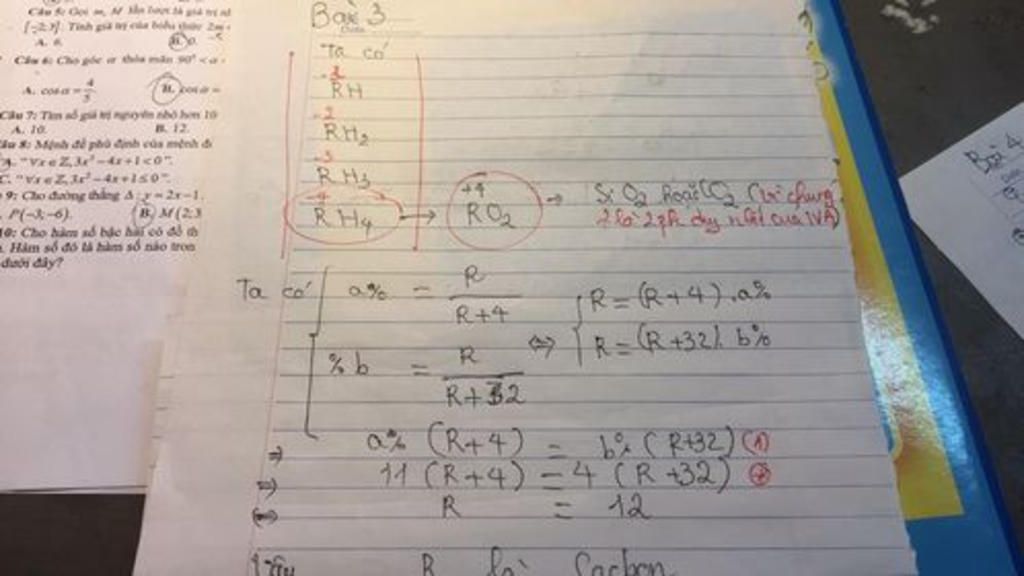 Câu 5: Gọi m, M lần lượt là giá trị
[-2;3]. Tính giá trị của biểu thức 2m
A. 6. B. 0.
Câu 6: Cho góc α thỏa mãn 90° < α
A. cos α = 4/5. B. cos α =
Câu 7: Tìm số giá trị nguyên nhỏ hơn 10
A. 10. B. 12.
Câu 8: Mệnh đề phủ định của mệnh đ
A. "∀x ∈ Z, 3x² - 4x + 1 < 0".
C. "∀x ∈ Z, 3x² - 4x + 1 ≤ 0".
9: Cho đường thẳng Δ: y = 2x - 1.
P(-3;-6). B. M(2;3
10: Cho hàm số bậc hai có đồ th
Hàm số đó là hàm số nào tron
dưới đây?
Bài 3
Ta có
RH
-2
RH2
-3
RH3
-4 +4
RH4 → RO2 → SiO2 hoặc CO2 (vì chúng
là 2 pk duy nhất của IVA)
Ta có a% = R / R+4
%b = R / R+32
⇔ R = (R+4).a%
R = (R+32).b%
⇒ a% (R+4) = b% (R+32) (1)
⇒ 11 (R+4) = 4 (R+32)
⇔ R = 12
Vậy R là Cacbon
Bài 4